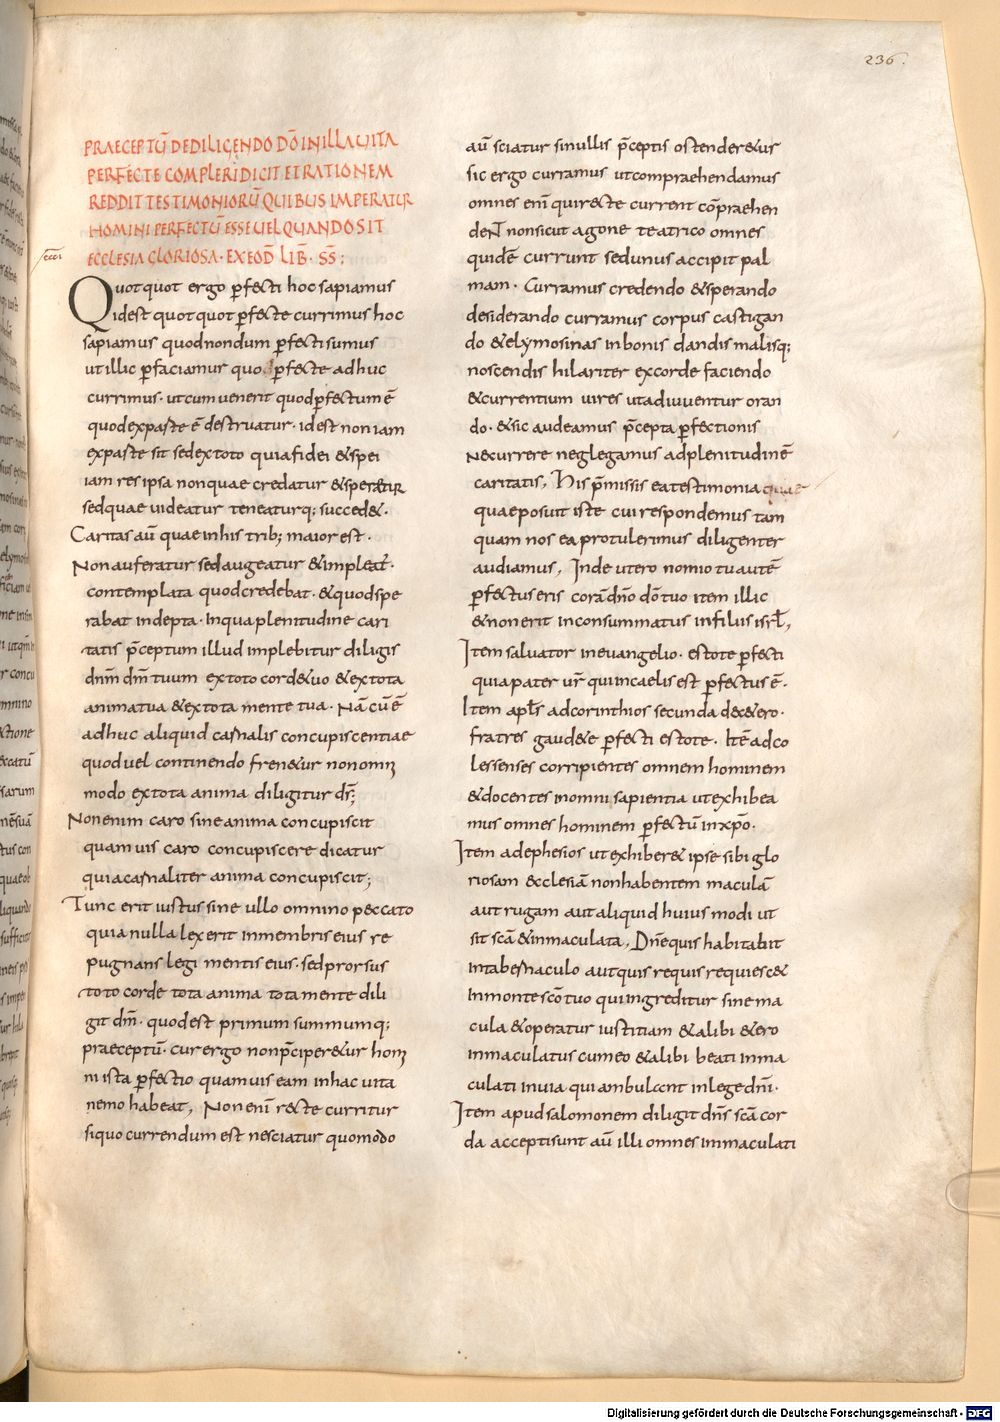 236.
PRAECEPTŪ DEDILIGENDO DŌ INILLA UITA
PERFECTE COMPLERI DICIT ET RATIONEM
REDDIT TESTIMONIORŪ QUIBUS IMPERATUR
HOMINI PERFECTŪ ESSE UEL QUANDO SIT
ECCLESIA GLORIOSA · EX EOD̄ LIB̄ · SS̄ ;
Quotquot ergo p̄fecti hoc sapiamus
idest quotquot p̄fecte currimus hoc
sapiamus quod nondum p̄fecti sumus
ut illic p̄ficiamur quo p̄fecte adhuc
currimus · ut cum uenerit quod p̄fectum ē
quod ex parte ē destruatur · idest non iam
ex parte sit sed ex toto quia fidei & spei
iam res ipsa non quae credatur & speretur
sed quae uideatur teneaturq; succed& ·
Caritas aū quae in his trib; maior est ·
Non auferatur sed augeatur & impleat̄ ·
contemplata quod credebat · & quod spe
rabat indepta · In qua plenitudine cari
tatis p̄ceptum illud implebitur diligis
dn̄m dm̄ tuum ex toto corde tuo & ex tota
anima tua & ex tota mente tua · Nā cū ē
adhuc aliquid carnalis concupiscentiae
quod uel continendo fren&ur non omni
modo ex tota anima diligitur ds̄ ;
Non enim caro sine anima concupiscit
quamuis caro concupiscere dicatur
quia carnaliter anima concupiscit ;
Tunc erit iustus sine ullo omnino peccato
quia nulla lex erit in membris eius re
pugnans legi mentis eius · sed prorsus
toto corde tota anima tota mente dili
git dm̄ · quod est primum summumq;
praeceptū · cur ergo non p̄ciper&ur homi
ni ista p̄fectio quamuis eam in hac uita
nemo habeat, Non enī recte curritur
si quo currendum est nesciatur quomodo
aū sciatur si nullis p̄ceptis ostender&ur
sic ergo curramus ut compraehendamus
omnes enī qui recte current cōpraehen
dent non sicut agone teatrico omnes
quidē currunt sed unus accipit pal
mam · Curramus credendo & sperando
desiderando curramus corpus castigan
do & elymosinas in bonis dandis malisq;
noscendis hilariter ex corde faciendo
& currentium uires ut adiuuentur oran
do · & sic audeamus p̄cepta p̄fectionis
ne currere neglegamus ad plenitudinē
caritatis, His p̄missis ea testimonia quae
quae posuit iste cui respondemus tam
quam nos ea protulerimus diligenter
audiamus, Inde utero nomio tu autē
p̄fectus eris corā dn̄o dō tuo item illic
& non erit inconsummatus in filiis isrl̄,
Item saluator in euangelio · estote p̄fecti
quia pater ur̄ qui in caelis est p̄fectus ē ·
Item apls̄ ad corinthios secunda de c&ero ·
fratres gaud&e p̄fecti estote · Itē ad co
lessenses corripientes omnem hominem
& docentes in omni sapientia ut exhibea
mus omnes hominem p̄fectū in xp̄o ·
Item ad ephesios ut exhiber& ipse sibi glo
riosam ecclesiā non habentem maculā
aut rugam aut aliquid huius modi ut
sit scā & inmaculata, Dn̄e quis habitabit
in tabernaculo aut quis requis requiesc&
In monte scō tuo qui ingreditur sine ma
cula & operatur iustitiam & alibi & ero
inmaculatus cum eo & alibi beati inma
culati in uia qui ambulant in lege dn̄i ·
Item apud salomonem diligit dn̄s scā cor
da accepti sunt aū illi omnes inmaculati
Digitalisierung gefördert durch die Deutsche Forschungsgemeinschaft - DFG